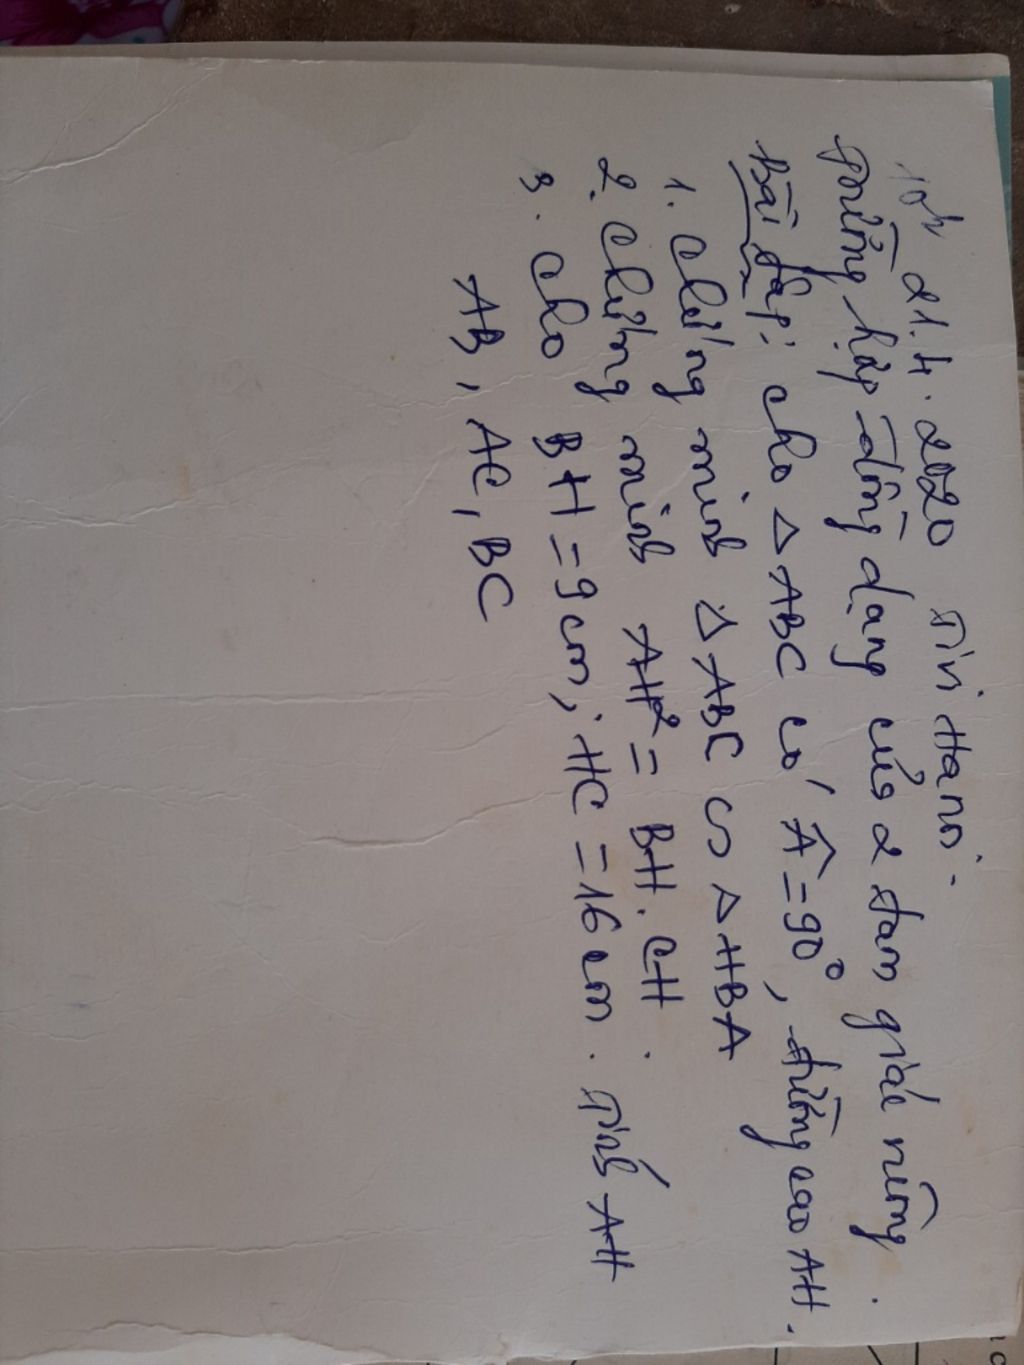 10h 21.4.2020 TiVi Hanoi.
Trường hợp đồng dạng của 2 tam giác vuông.
Bài tập: cho △ABC có Â=90°, đường cao AH.
1. chứng minh △ABC ∽ △HBA
2. chứng minh AH² = BH.CH.
3. cho BH = 9cm; HC = 16cm. Tính AH
AB, AC, BC